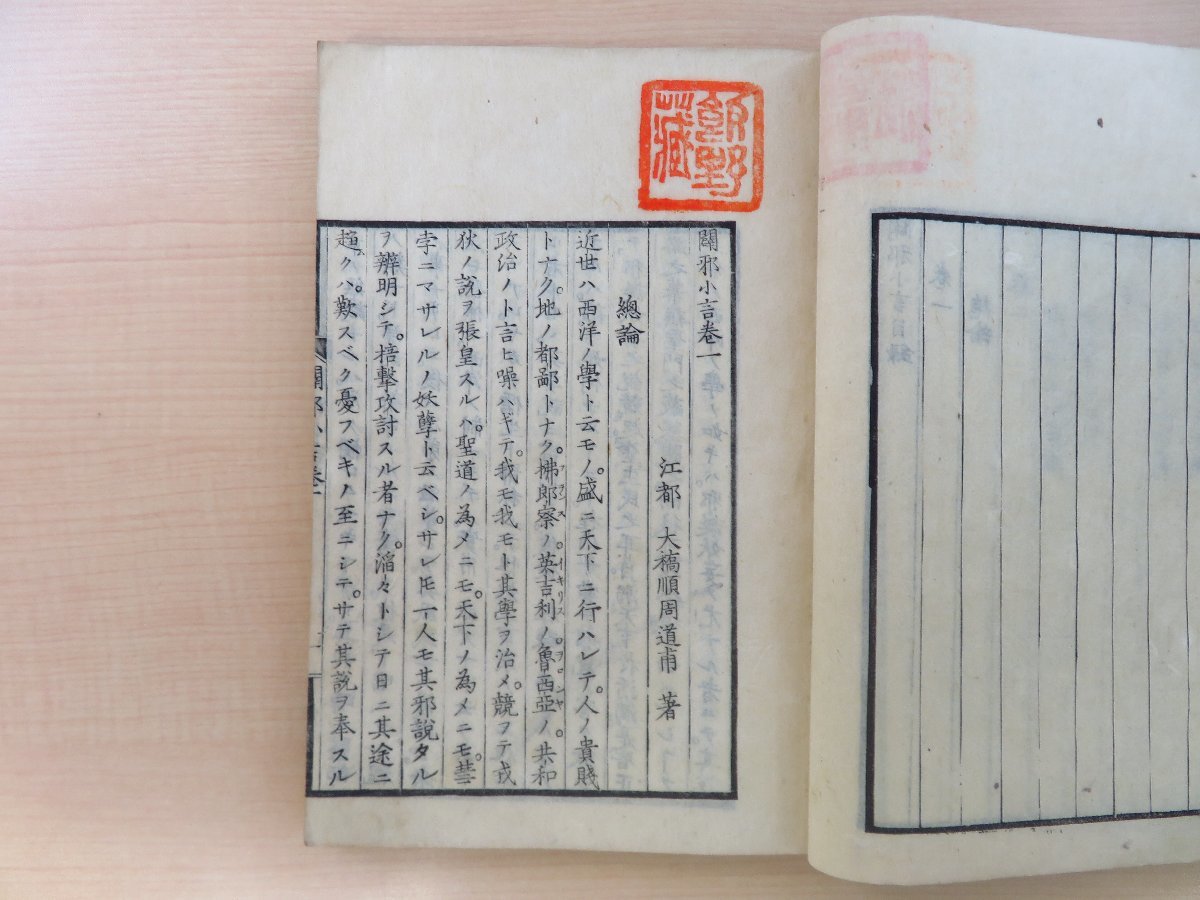 飯野藏
闢邪小言卷一
江都 大槗順周道甫 著
總論
近世ハ西洋ノ學ト云モノ。盛ニ天下ニ行ハレテ。人ノ貴賤
トナク。地ノ都鄙トナク。拂郎察ノ。英吉利ノ。魯西亞ノ。共和
政治ノト言ヒ噪ハギテ。我モ我モト其學ヲ治メ。競フテ戎
狄ノ說ヲ張皇スルハ。聖道ノ為メニモ。天下ノ為メニモ。彗
孛ニマサレルノ妖孽ト云ベシ。サレ𪜈一人モ其邪說タル
ヲ辨明シテ。掊擊攻討スル者ナク。滔々トシテ日ニ其途ニ
趨クハ。歎スベク憂フベキノ至ニシテ。サテ其說ヲ奉スル
闢邪小言目録
卷一
總論